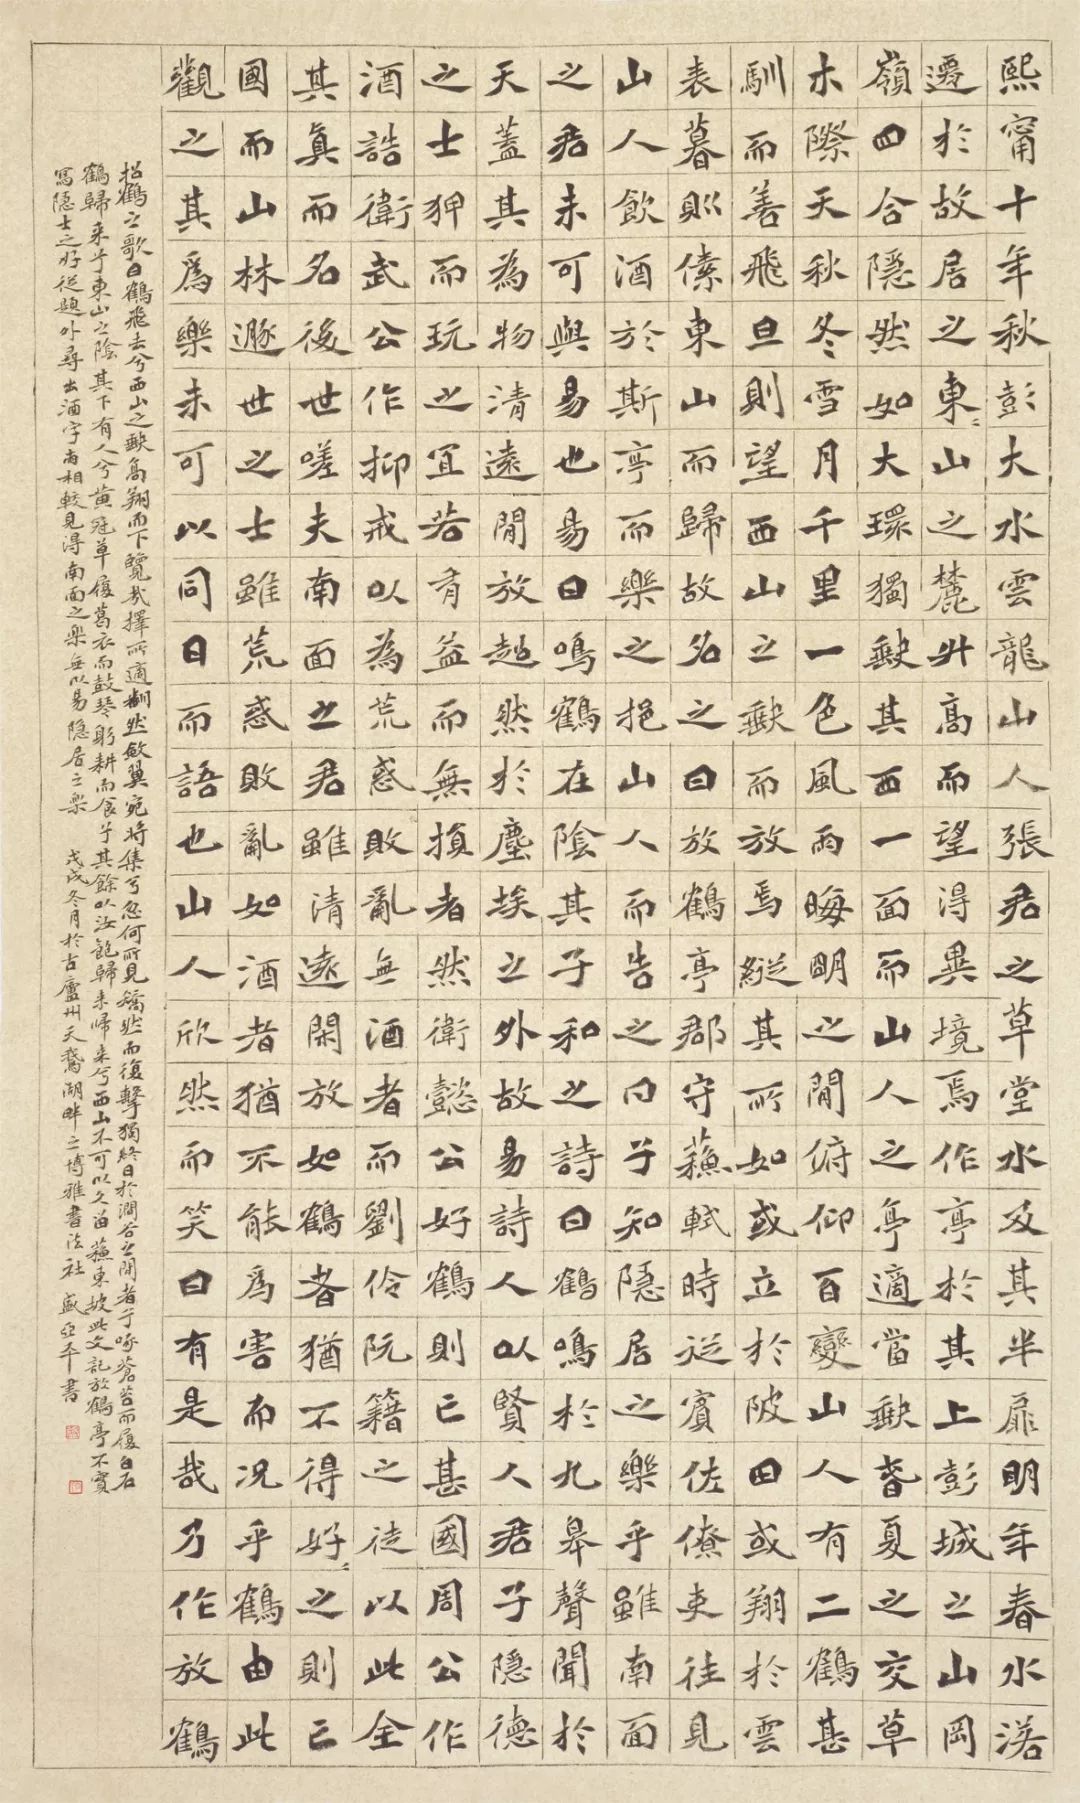 熙甯十年秋彭大水雲龍山人張君之草堂水及其半扉明年春水落
遷於故居之東山之麓升高而望得異境焉作亭於其上彭城之山岡
嶺四合隱然如大環獨缺其西一面而山人之亭適當缺春夏之交草
木際天秋冬雪月千里一色風雨晦明之間俯仰百變山人有二鶴甚
馴而善飛旦則望西山之缺而放焉縱其所如或立於陂田或翔於雲
表暮則傃東山而歸故名之曰放鶴亭郡守蘇軾時從賓佐僚吏往見
山人飲酒於斯亭而樂之挹山人而告之曰子知隱居之樂乎雖南面
之君未可與易也易曰鳴鶴在陰其子和之詩曰鶴鳴於九皋聲聞於
天蓋其為物清遠閒放超然於塵埃之外故易詩人以賢人君子隱德
之士狎而玩之宜若有益而無損者然衛懿公好鶴則亡其國周公作
酒誥衛武公作抑戒以為荒惑敗亂無酒者而劉伶阮籍之徒以此全
其真而名後世嗟夫南面之君雖清遠閑放如鶴者猶不得好之則亡
國而山林遯世之士雖荒惑敗亂如酒者猶不能為害而況乎鶴由此
觀之其為樂未可以同日而語也山人欣然而笑曰有是哉乃作放鶴
招鶴之歌曰鶴飛去兮西山之缺高翔而下覽哉擇所適翻然斂翼宛將集兮忽何所見矯然而復擊獨終日於澗谷之間者兮啄蒼苔而履白石
鶴歸來兮東山之陰其下有人兮黃冠草履葛衣而鼓琴躬耕而食兮其餘以汝飽歸來歸來兮西山不可以久留蘇東坡此文記放鶴亭不實
寫隱士之好從題外尋出酒字兩相較見得南面之樂無以易隱居之樂 戊戌冬月於古廬州天鵝湖畔之博雅書法社 盛亞平書